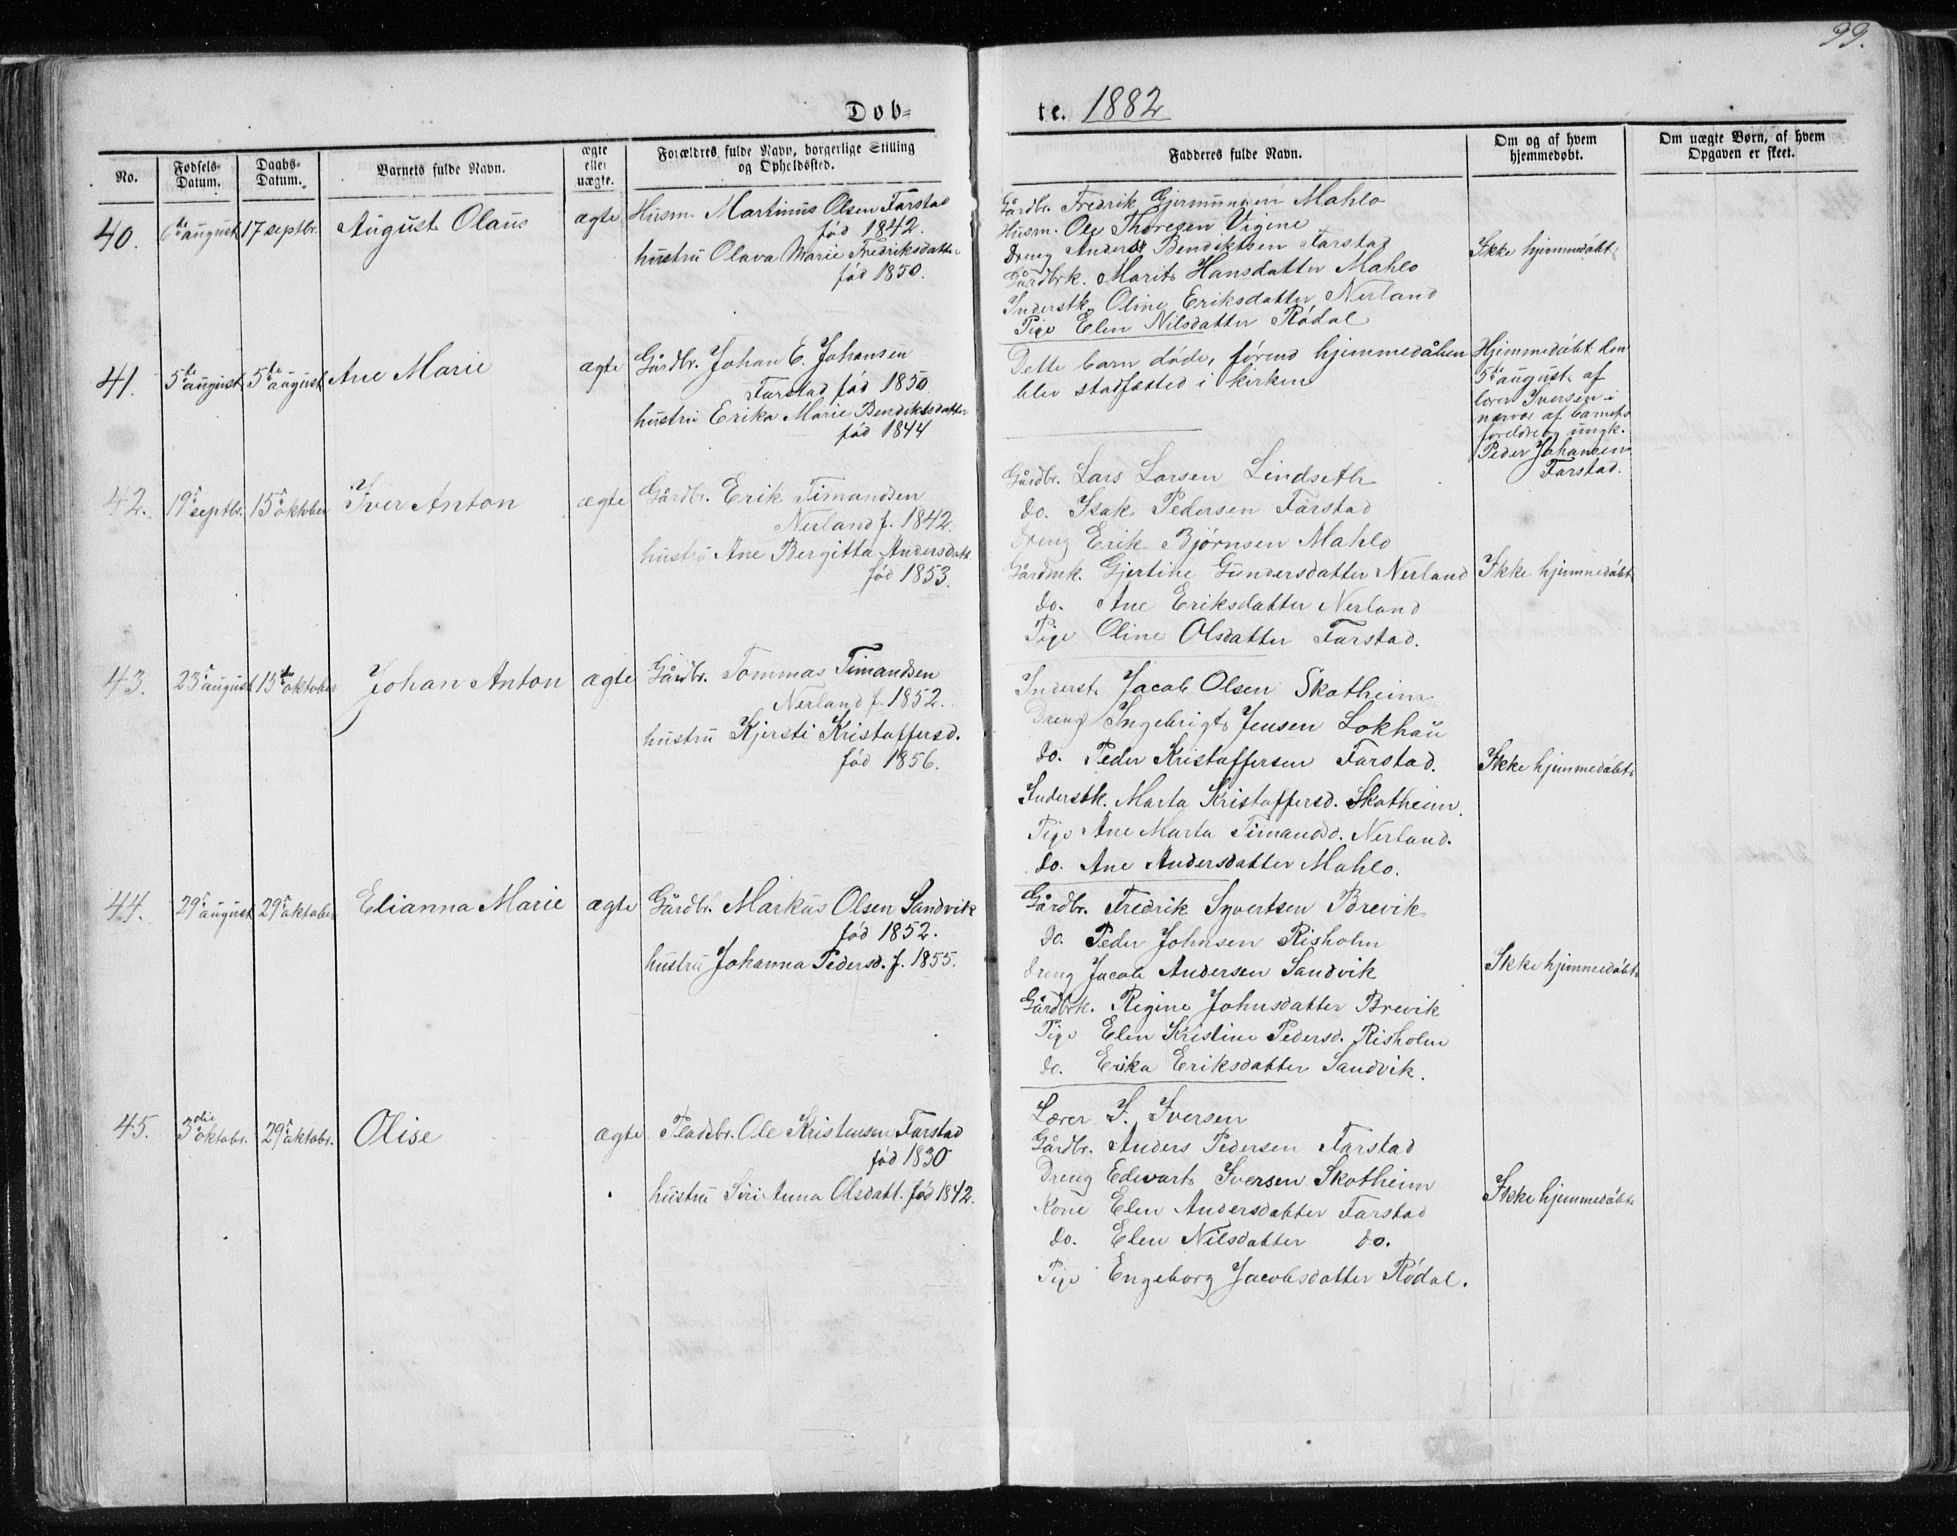 99.
Døb=
te. 1882
No.
Fødsels-
Datum.
Daabs-
Datum.
Barnets fulde Navn.
ægte
eller
uægte.
Forældres fulde Navn, borgerlige Stilling
og Opholdssted.
Fadderes fulde Navn.
Om og af hvem
hjemmedøbt.
Om uægte Børn, af hvem
Opgaven er skeet.
40. 6te august 17 septbr. August Olaus ægte
Husm. Martinus Olsen Farstad
fød 1842.
hustru Olava Marie Fredriksdatter
fød 1850.
Gårdbr. Fredrik Gjermundsen Mahlo
Husm. Ole Thoresen Vigine
Dreng Anders Bendiktsen Farstad
Gårdbrk. Marit Hansdatter Mahlo
Inderstk. Oline Eriksdatter Nerland
Pige Elen Nilsdatter Rødal
Ikke hjemmedøbt
41. 5te august 5te august Ane Marie ægte
Gårdbr. Johan E. Johansen
Farstad fød 1850
hustru Erika Marie Bendiktsdatter
fød 1844
Dette barn døde, førend hjemmedåben
blev stadfæsted i kirken
Hjemmedøbt den
5te august af
lærer Iversen i
nærvær af barnets
foreldre og ungk.
Peder Johansen
Farstad.
42. 19de septbr. 15de oktober Iver Anton ægte
Gårdbr. Erik Timandsen
Nerland f. 1842.
hustru Ane Bergitta Andersdatt.
fød 1853.
Gårdbr. Lars Larsen Lindseth
do. Isak Pedersen Farstad
Dreng Erik Bjørnsen Mahlo
Gårdbrk. Gjertine Gundersdatter Nerland
do. Ane Eriksdatter Nerland
Pige Oline Olsdatter Farstad.
Ikke hjemmedøbt
43. 23de august 15de oktober Johan Anton ægte
Gårdbr. Tommas Timandsen
Nerland f. 1852.
hustru Kjersti Kristoffersd.
fød 1856.
Inderst. Jacob Olsen Skotheim
Dreng Ingebrigt Jensen Lokhau
do. Peder Kristoffersen Farstad.
Inderstk. Marta Kristoffersd. Skotheim.
Pige Ane Marta Timandsd. Nerland.
do. Ane Andersdatter Mahlo.
Ikke hjemmedøbt
44. 29de august 29de oktober Elianna Marie ægte
Gårdbr. Markus Olsen Sandvik
fød 1852.
hustru Johanna Pedersd. f. 1855.
Gårdbr. Fredrik Syvertsen Brevik
do. Peder Johnsen Risholm
Dreng Jacob Andersen Sandvik
Gårdbrk. Regine Johnsdatter Brevik
Pige Elen Kristine Pedersd. Risholm
do. Erika Eriksdatter Sandvik.
Ikke hjemmedøbt
45. 3die oktobr. 29de oktobr. Olise ægte
Pladsbr. Ole Kristensen Farstad
fød 1830
hustru Siri Anna Olsdatt. fød 1842.
Lærer I. Iversen
Gårdbr. Anders Pedersen Farstad
Dreng Edevart Iversen Skotheim
Kone Elen Andersdatter Farstad
do. Elen Nilsdatter do.
Pige Engeborg Jacobsdatter Rødal.
Ikke hjemmedøbt